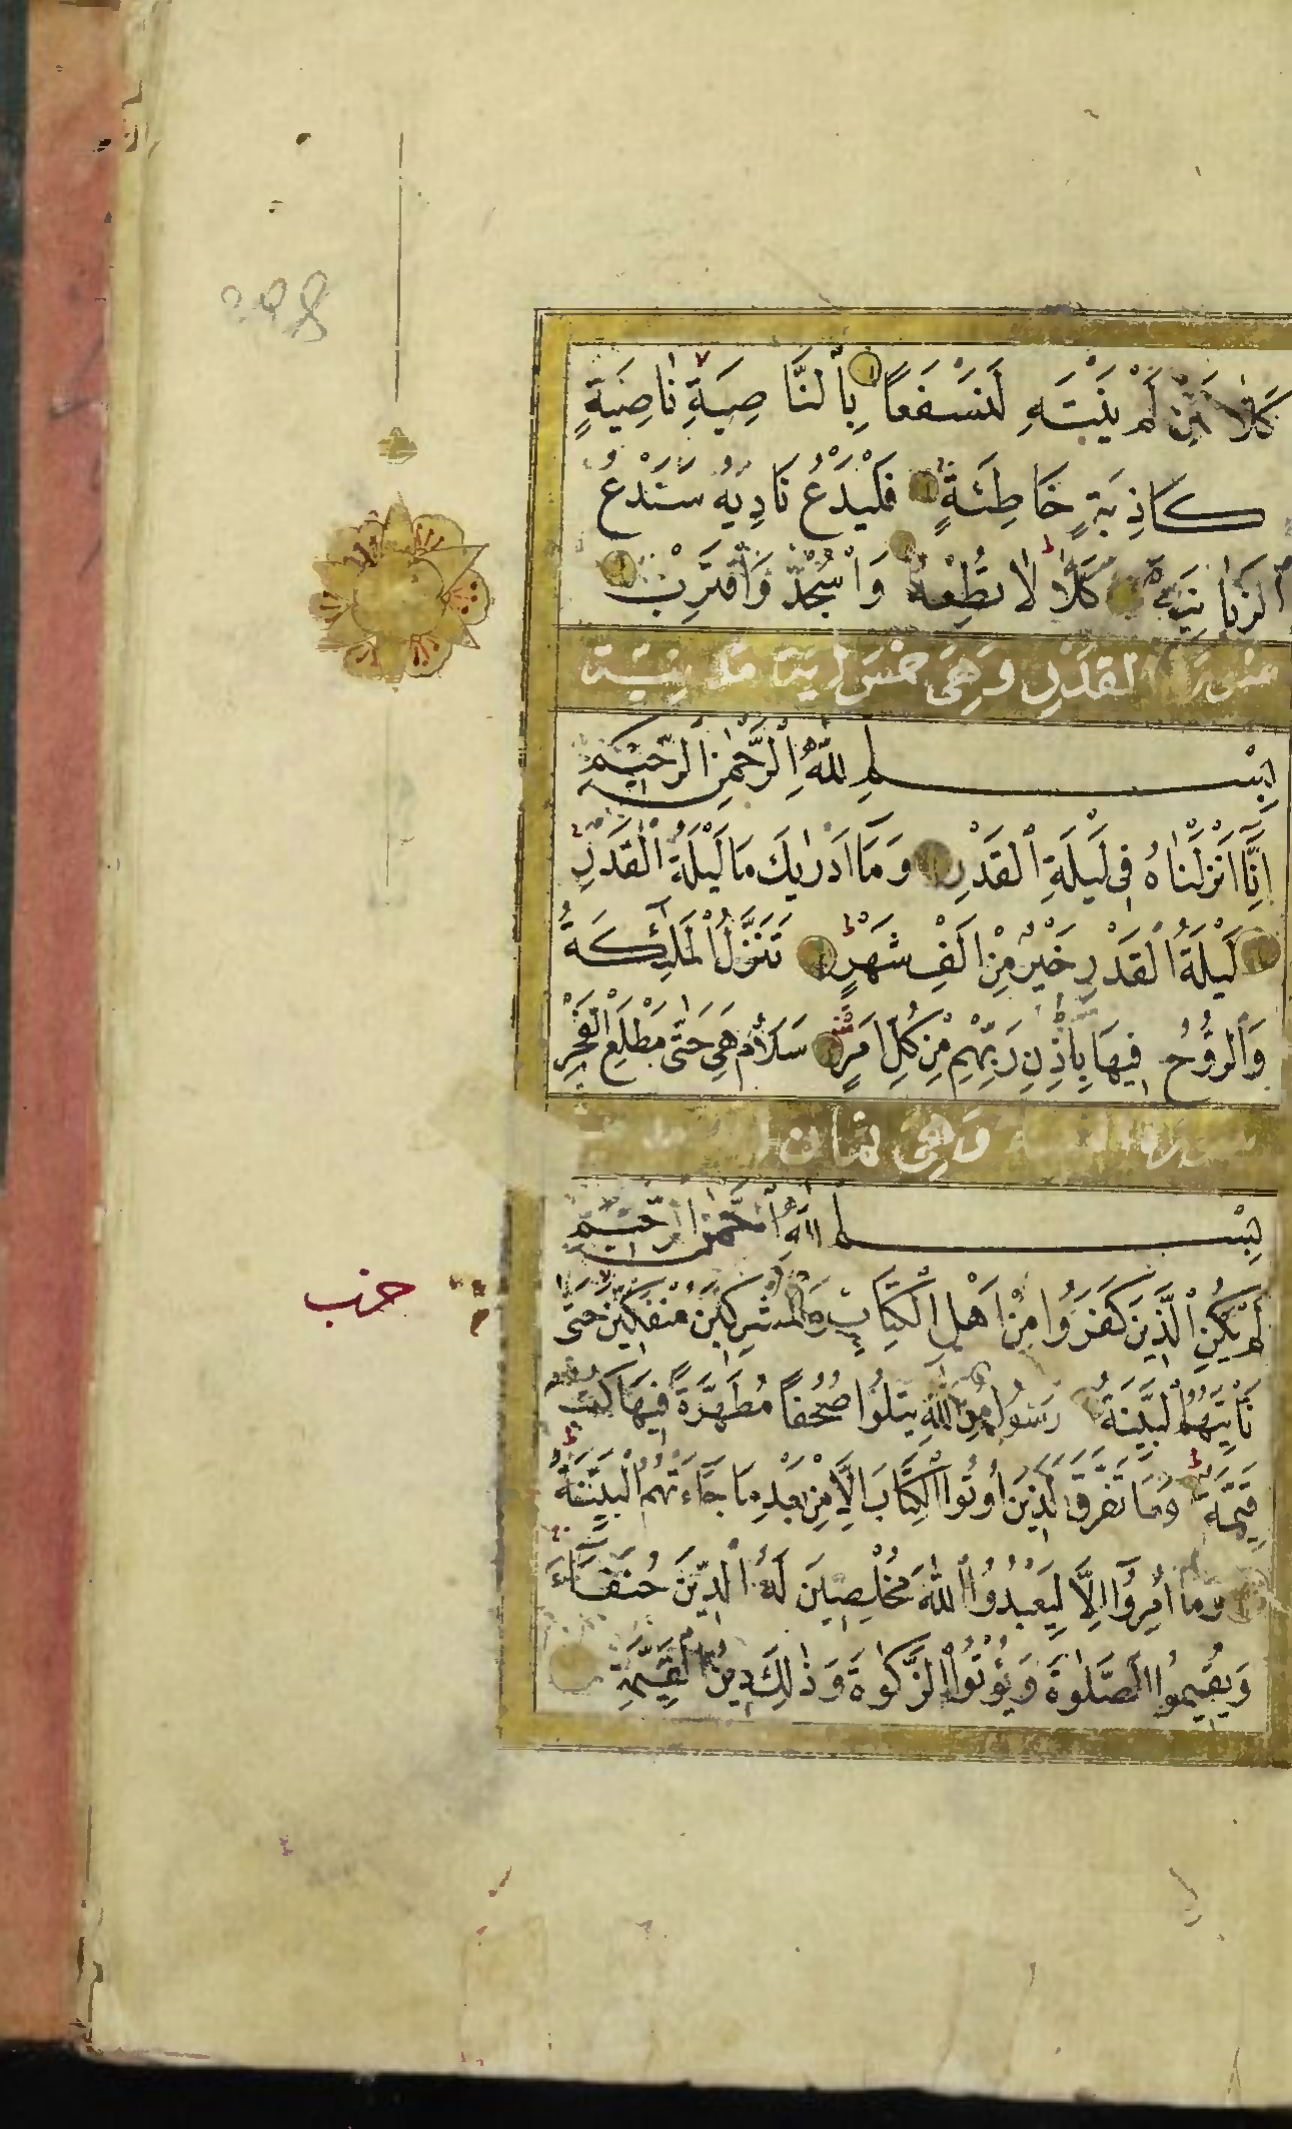 كَلَّا لَئِنْ لَمْ يَنْتَهِ لَنَسْفَعًا بِالنَّاصِيَةِ نَاصِيَةٍ
كَاذِبَةٍ خَاطِئَةٍ فَلْيَدْعُ نَادِيَهُ سَنَدْعُ
الزَّبَانِيَةَ كَلَّا لَا تُطِعْهُ وَاسْجُدْ وَاقْتَرِبْ
سُورَةُ الْقَدْرِ وَهِيَ خَمْسُ ايَة مَدَنِيَّة
بِسْمِ اللَّهِ الرَّحْمَنِ الرَّحِيمِ
اِنَّا اَنْزَلْنَاهُ فِي لَيْلَةِ الْقَدْرِ وَمَا اَدْرٰيكَ مَا لَيْلَةُ الْقَدْرِ
لَيْلَةُ الْقَدْرِ خَيْرٌ مِنْ اَلْفِ شَهْرٍ تَنَزَّلُ الْمَلٰئِكَةُ
وَالرُّوحُ فِيهَا بِاِذْنِ رَبِّهِمْ مِنْ كُلِّ اَمْرٍ سَلَامٌ هِيَ حَتّٰى مَطْلَعِ الْفَجْرِ
وَهِيَ ثَمَان
بِسْمِ اللَّهِ الرَّحْمَنِ الرَّحِيمِ
لَمْ يَكُنِ الَّذِينَ كَفَرُوا مِنْ اَهْلِ الْكِتَابِ وَالْمُشْرِكِينَ مُنْفَكِّينَ حَتّٰى
تَأْتِيَهُمُ الْبَيِّنَةُ رَسُولٌ مِنَ اللَّهِ يَتْلُوا صُحُفًا مُطَهَّرَةً فِيهَا كُتُبٌ
قَيِّمَةٌ وَمَا تَفَرَّقَ الَّذِينَ اُوتُوا الْكِتَابَ اِلَّا مِنْ بَعْدِ مَا جَاءَتْهُمُ الْبَيِّنَةُ
وَمَا اُمِرُوا اِلَّا لِيَعْبُدُوا اللَّهَ مُخْلِصِينَ لَهُ الدِّينَ حُنَفَاءَ
وَيُقِيمُوا الصَّلٰوةَ وَيُؤْتُوا الزَّكٰوةَ وَذٰلِكَ دِينُ الْقَيِّمَةِ
حزب